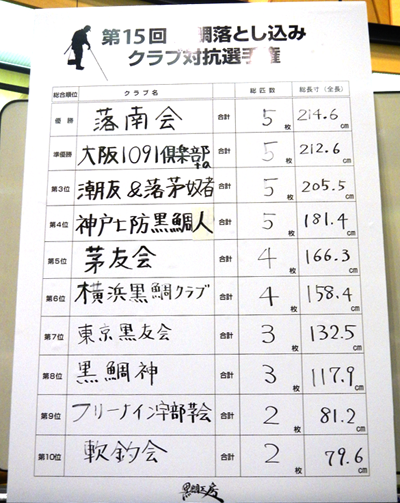 第15回 鯛落とし込み
クラブ対抗選手権
総合順位 クラブ名 総匹数 総長寸(全長)
優勝 落南会 合計 5枚 214.6cm
準優勝 大阪1091倶楽部 合計 5枚 212.6cm
第3位 潮友&落茅奴者 合計 5枚 205.5cm
第4位 神戸士防黒鯛人 合計 5枚 181.4cm
第5位 茅友会 合計 4枚 166.3cm
第6位 横浜黒鯛クラブ 合計 4枚 158.4cm
第7位 東京黒友会 合計 3枚 132.5cm
第8位 黒鯛神 合計 3枚 117.9cm
第9位 フリーナイン宇部茅会 合計 2枚 81.2cm
第10位 軟釣会 合計 2枚 79.6cm
黒鯛工房